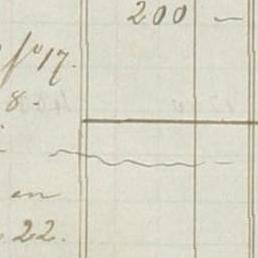 200 —
fo 17.
8.
en
22.